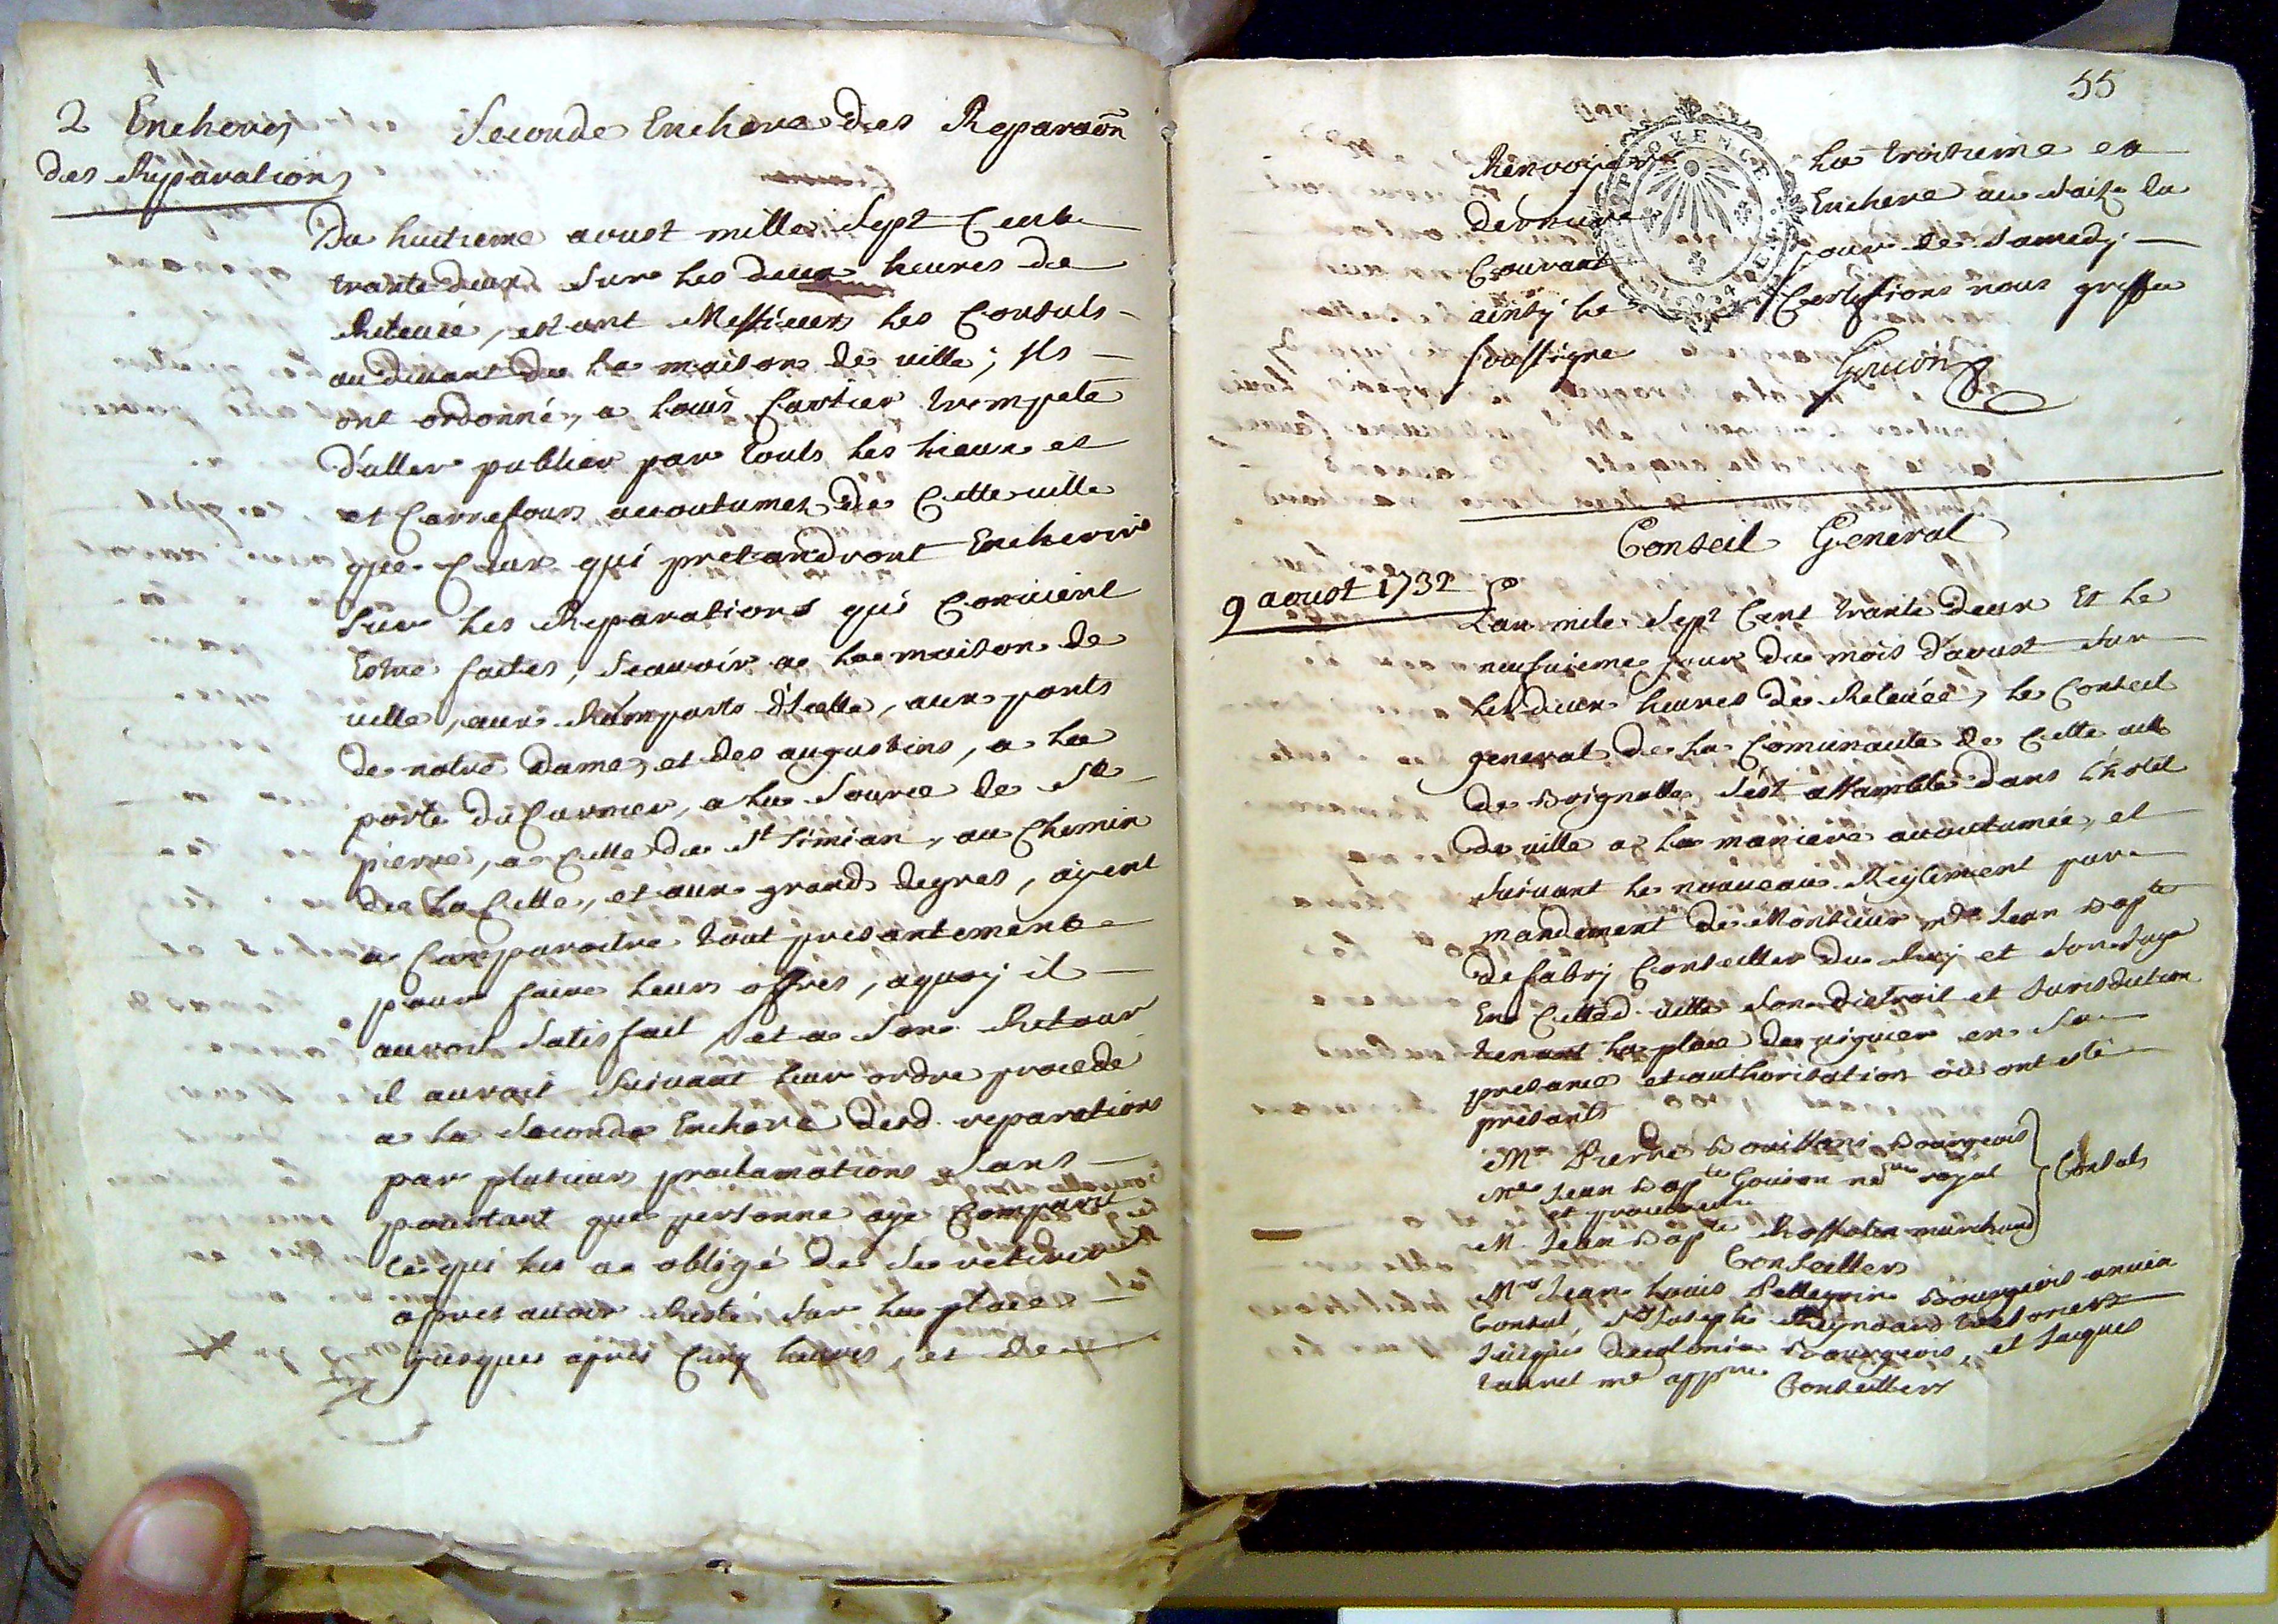 2 Encheres
des Reparations
Seconde Enchere des Reparaõn
Du huitieme aoust mille Sept Cents
trante deux Sur les deux heures de
Relevée, estant Messieurs les Consuls
au devant de la maison de ville; Ils
ont ordonné, a Louis Cartier trompete
d'aller publier par touts les lieux et
et Carrefours accoutumes de Cette ville
que Ceux qui pretandront Encherir
Sur les Reparations qui Convient
Estre faites, Scavoir a la maison de
ville, aux Remparts d'Icelle, aux ponts
de notre dame, et des augustins, a la
porte du Carmes, a la Source de St
pierre, a Celle de St Simian, au Chemin
de La Celle, et aux grands degres, ayent
a Comparoitre tout presantement
pour faire leurs offres, aquoy il
auroit Satisfait et a Son Retour
il auroit Suivant leur ordre procedé
a la Seconde Enchere desd. reparations
par plusieurs proclamations Sans
pourtant que personne aye Comparu
Ce qui les a obligé de Se retirer
apres avoir Resté Sur la place
jusques apres Cinq heures, et de
55
Renvoyer la troisieme et
derniere Enchere au Saize du
Courant jour de Samedy
ainsy le Certifions nous greffier
Soussigne Gouion
Conseil General
9 aoust 1732
L'an mile Sept Cent trante deux Et le
neufvieme jour du mois d'aoust Sur
les deux heures de Relevée, le Conseil
general de la Comunauté de Cette ville
de Brignolle S'est assamblé dans l'hotel
de ville a la maniere accoutumée, et
Suivant le nouveau Reglement par
mandement de Monsieur Me Jean Bapte
de fabry Conseiller du Roy et Son Juge
En Cetted. ville Son distroit et Jurisdiction
tenant la place de viguier en Sa
presance et authorisation où ont esté
presants
Mr Pierre Bouillon Bourgeois
Me Jean Bapte Gouion nore royal
et procureur
M. Jean Bapte Rossolin marchand
Consuls
Conseillers
Mrs Jean Louis Pellegrin Bourgeois ancien
Consul, Sr Joseph Reynaud tresorier
Jacques Bourgeois, et Jacques
me appre Conseillers